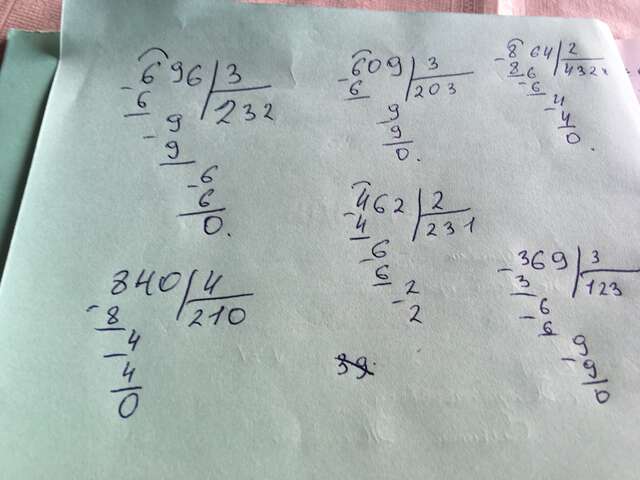 696 3
- 6 232
- 9
9
- 6
6
0.
609 3
- 6 203
9
9
0.
864 2
- 8 432
- 6
6
- 4
4
0.
840 4
- 8 210
- 4
4
0
462 2
- 4 231
- 6
6
- 2
2
369 3
- 3 123
- 6
6
- 9
9
0